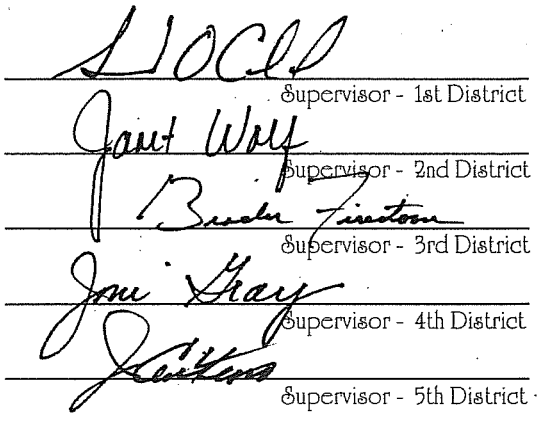 Supervisor - 1st District
Janet Wolf
Supervisor - 2nd District
Firestone
Supervisor - 3rd District
Joni Gray
Supervisor - 4th District
Supervisor - 5th District